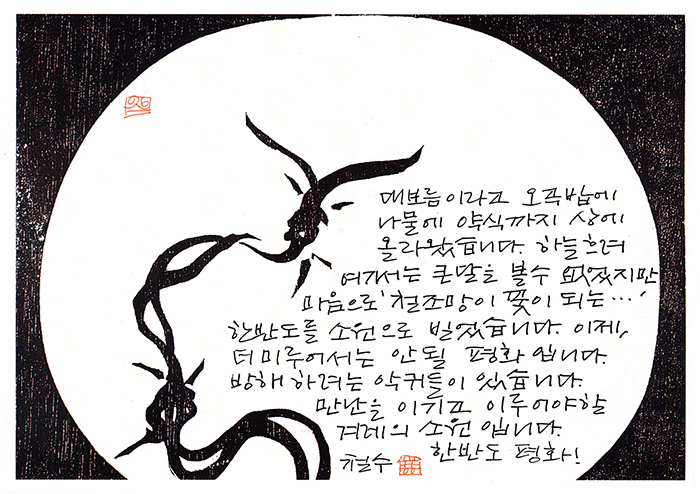 대보름이라고 오곡밥에
나물에 약식까지 상에
올라왔습니다. 하늘 흐려
여기서는 큰달을 볼 수 없었지만
마음으로 '철조망이 꽃이 되는…'
한반도를 소원으로 빌었습니다. 이제,
더 미루어서는 안될 평화입니다.
방해하려는 악귀들이 있습니다.
만난을 이기고 이루어야할
겨레의 소원입니다.
한반도 평화!
철수